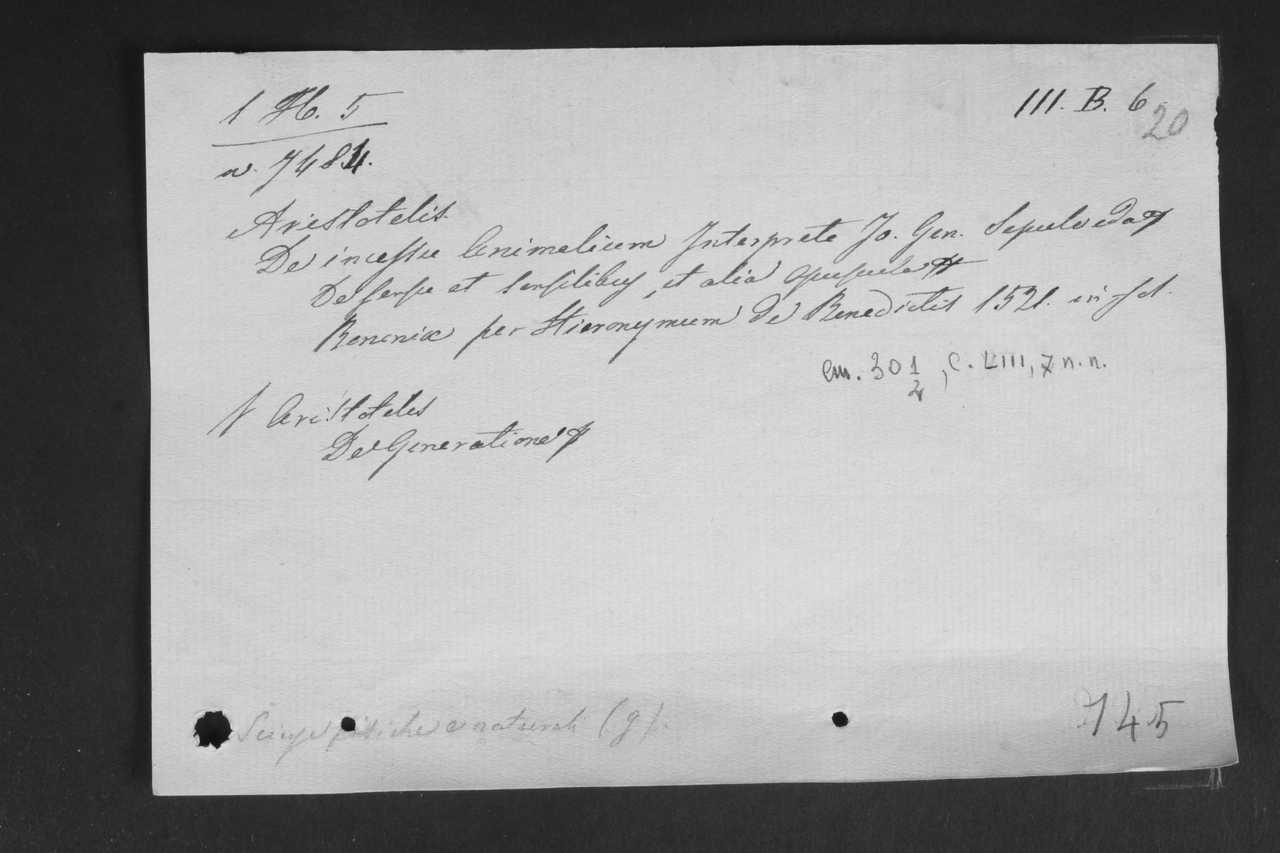 1 H. 5
III. B. 6
20
n. 7484.
Aristotelis
De incessu Animalium Interprete Jo. Gen. Sepulveda
De sensu et sensilibus, et alia opuscula
Bononiæ per Hieronymum de Benedictis 1521. in fol.
cm. 30 1/2, c. LIII, 7 n. n.
Aristoteles
De Generatione
Scienze fisiche e naturali (g).
745